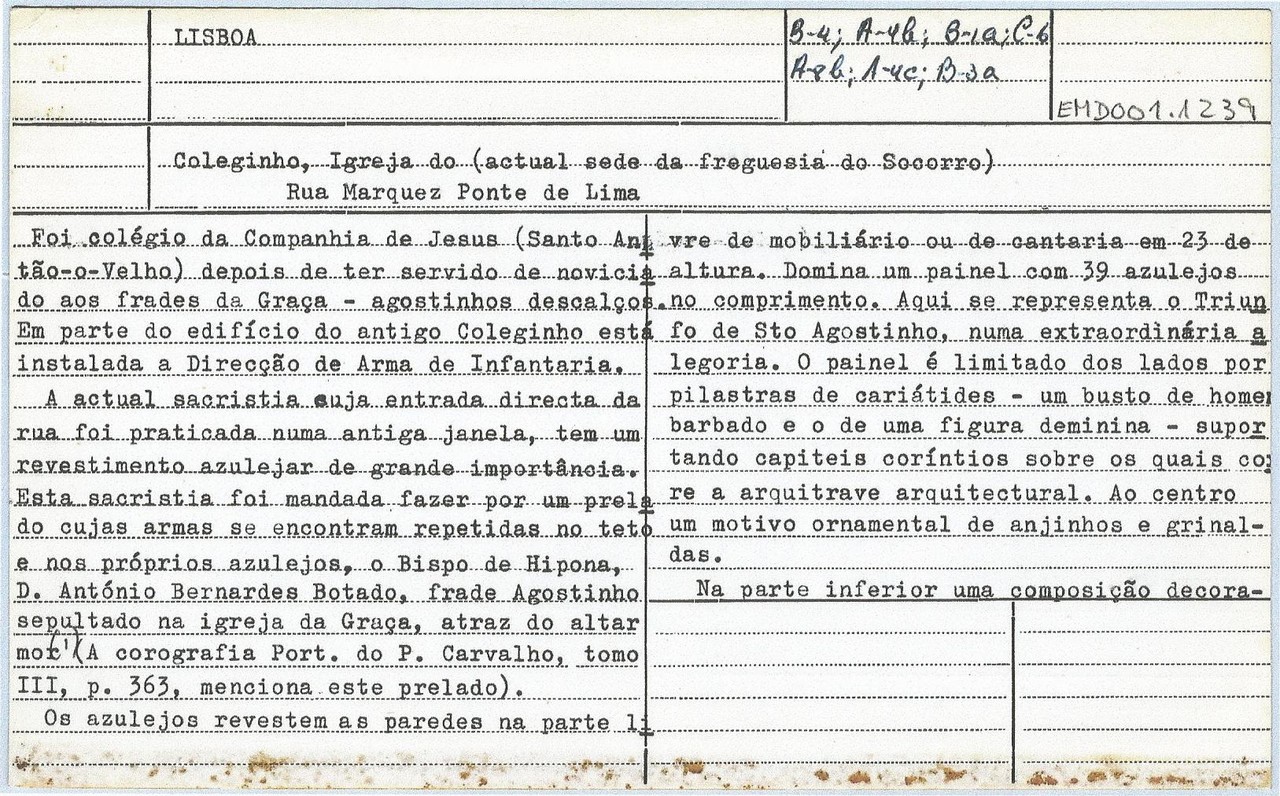 LISBOA
B-4; A-4b; B-1a; C-6
A-8b; A-4c; B-3a
EMD001.1239
Coleginho, Igreja do (actual sede da freguesia do Socorro)
Rua Marquez Ponte de Lima
Foi colégio da Companhia de Jesus (Santo An
tão-o-Velho) depois de ter servido de novicia
do aos frades da Graça - agostinhos descalços.
Em parte do edifício do antigo Coleginho está
instalada a Direcção de Arma de Infantaria.
A actual sacristia cuja entrada directa da
rua foi praticada numa antiga janela, tem um
revestimento azulejar de grande importância.
Esta sacristia foi mandada fazer por um prela
do cujas armas se encontram repetidas no teto
e nos próprios azulejos, o Bispo de Hipona,
D. António Bernardes Botado, frade Agostinho
sepultado na igreja da Graça, atraz do altar
mor (1) (A corografia Port. do P. Carvalho, tomo
III, p. 363, menciona este prelado).
Os azulejos revestem as paredes na parte li
vre de mobiliário ou de cantaria em 23 de
altura. Domina um painel com 39 azulejos
no comprimento. Aqui se representa o Triun
fo de Sto Agostinho, numa extraordinária a
legoria. O painel é limitado dos lados por
pilastras de cariátides - um busto de homem
barbado e o de uma figura deminina - supor
tando capiteis coríntios sobre os quais cor
re a arquitrave arquitectural. Ao centro
um motivo ornamental de anjinhos e grinal-
das.
Na parte inferior uma composição decora-